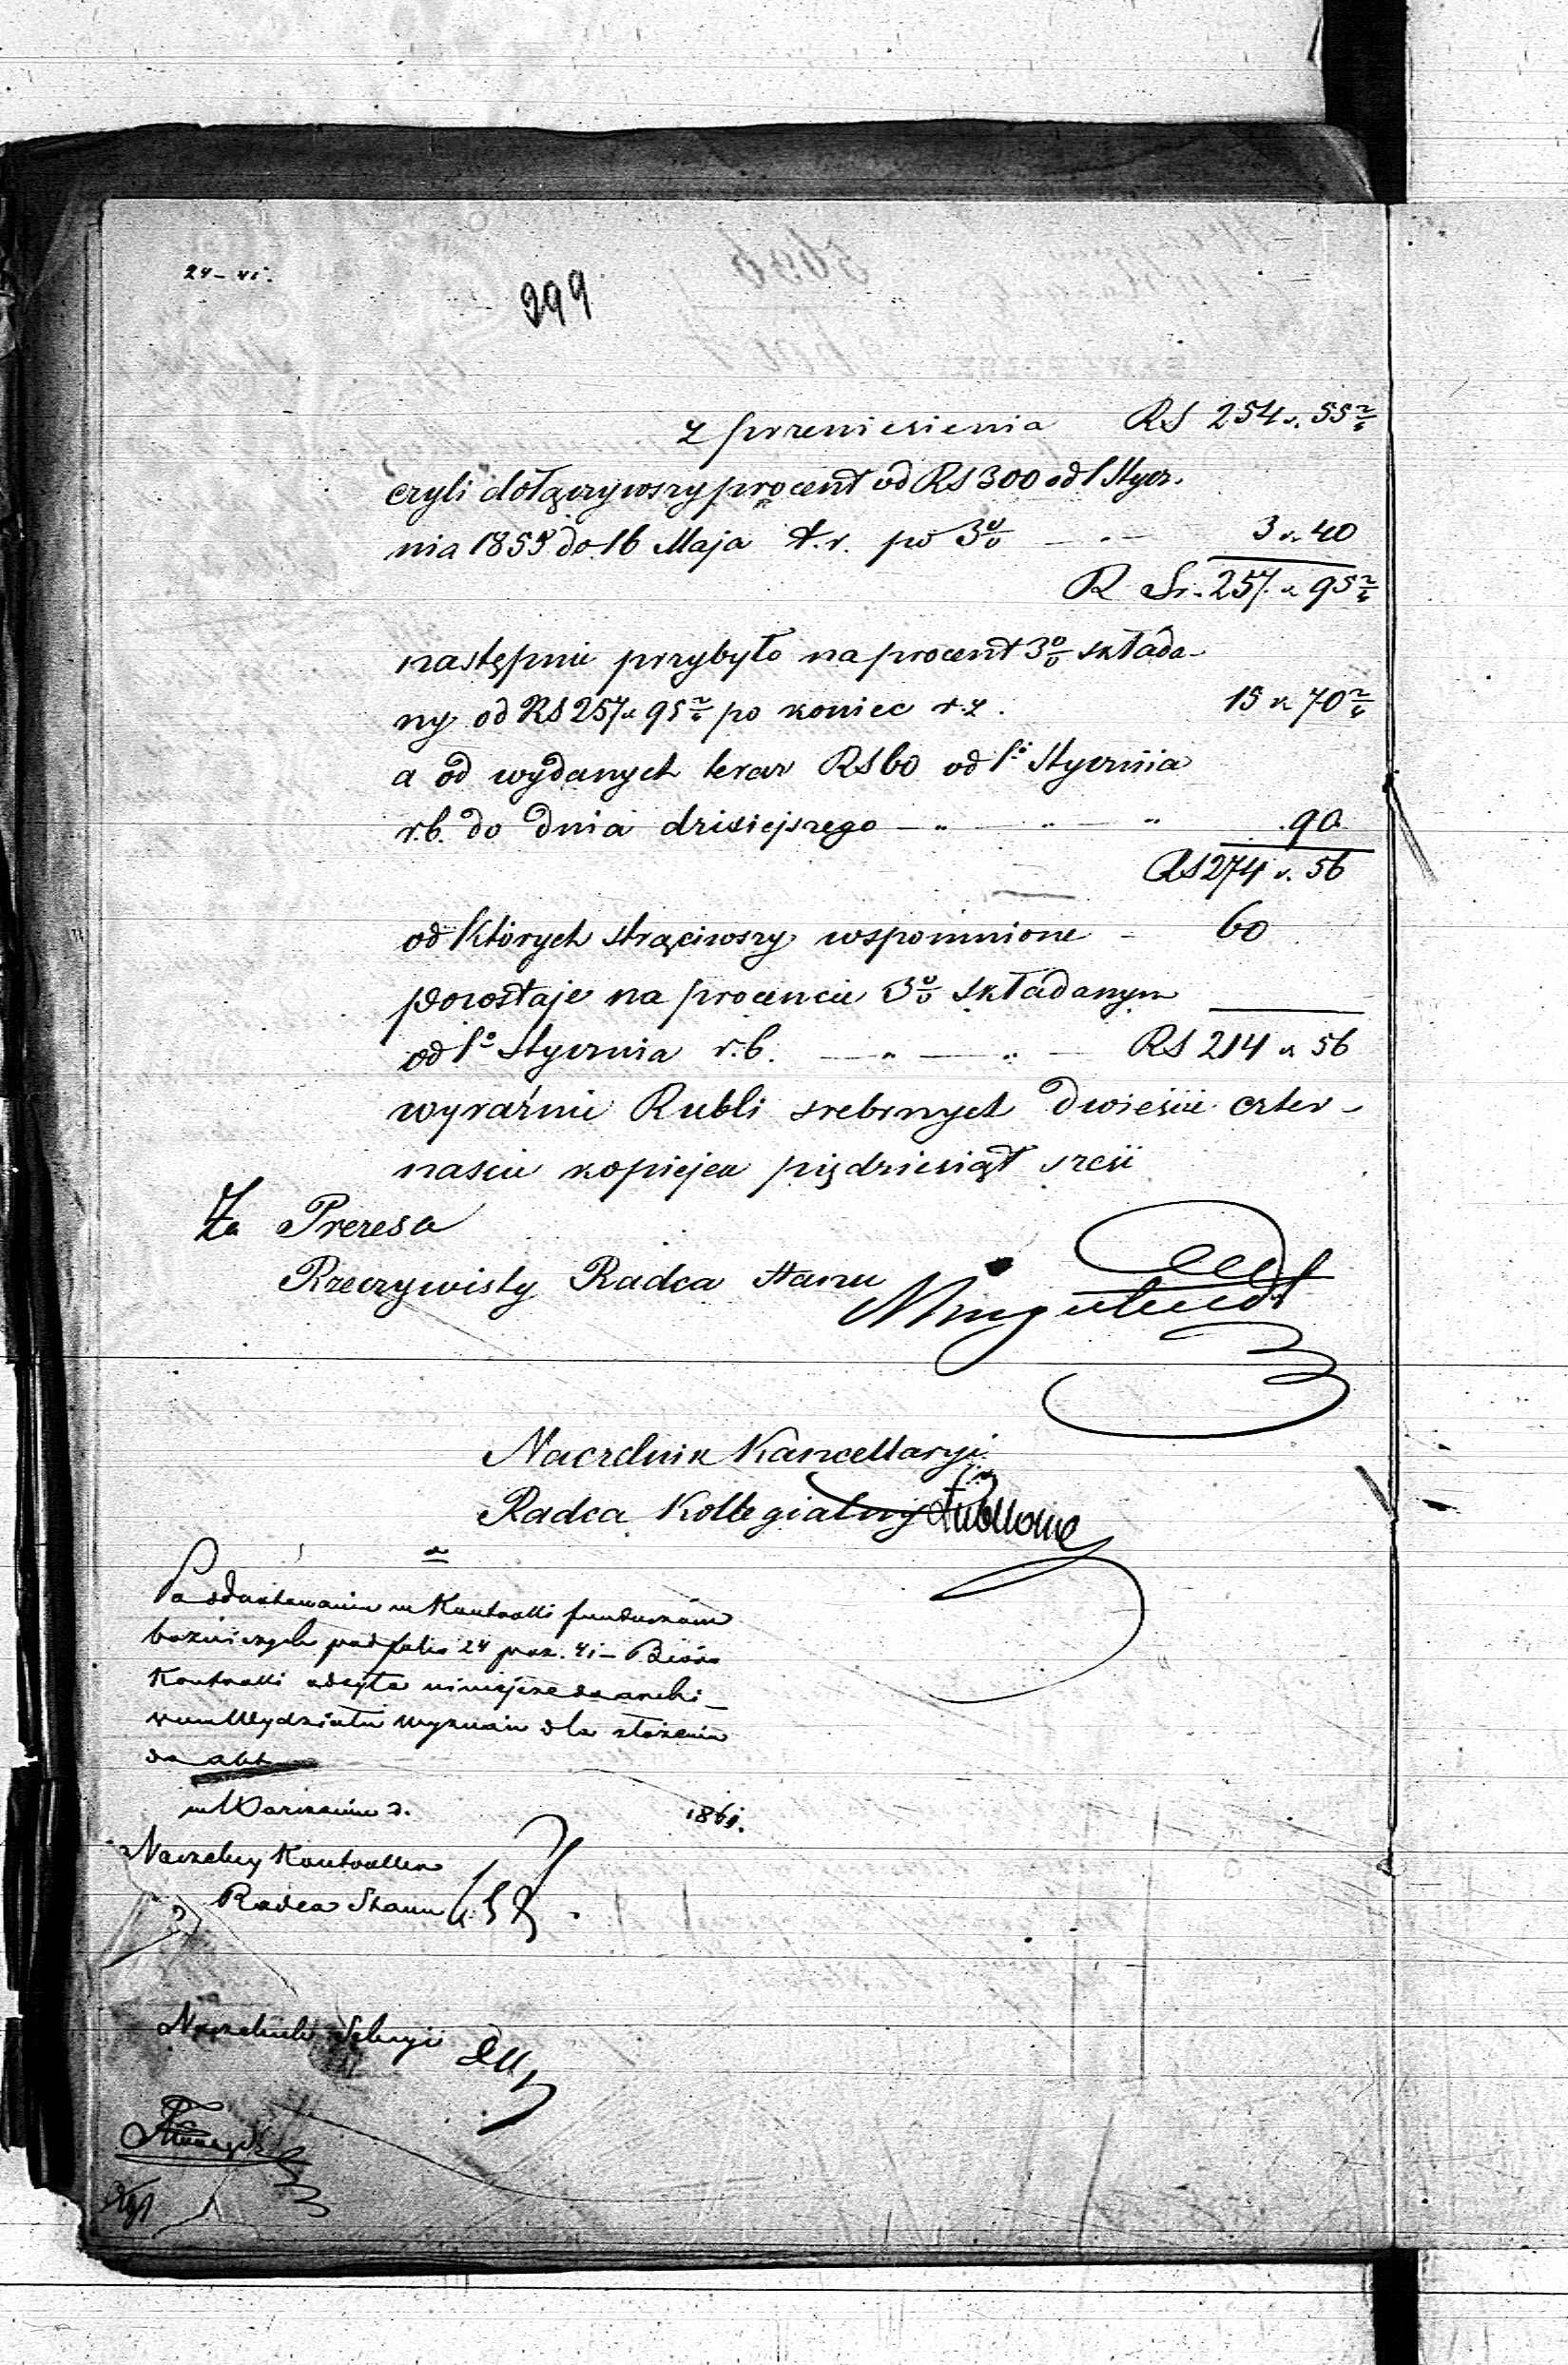 24 – 41.
299
z przeniesienia RS 254 k. 55 2/4
czyli dołączywszy procent od RS 300 od 1 Stycz.
nia 1859 do 16 Maja t.r. po 3 0/0 — " — 3 k. 40
R Sr. 257 k 95 2/4
następnie przybyło na procent 3 0/0 składa-
ny od RS 257 k 95 2/4 po koniec r.z. 15 k 70 2/4
a od wydanych teraz RS 60 od 1° Stycznia
r.b. do dnia dzisiejszego — " — " — " 90
RS 274 k. 56
od których strąciwszy wspomnione - 60
pozostaje na procencie 3 0/0 składanym
od 1° Stycznia r.b. — " — " — RS 214 k 56
wyraźnie Rubli srebrnych dwieście czter-
naście kopiejek pięćdziesiąt sześć
Za Prezesa
Rzeczywisty Radca Stanu
Naczelnik Kancellaryi
Radca Kollegialny
Po odnotowaniu w Kontrolli funduszów
bożniczych pod folio 24 poz. 41 – Biuro
Kontrolli odsyła niniejsze do archi-
wum Wydziału Wyznań dla złożenia
do akt
w Warszawie d. 1861.
Naczelny Kontroller
Radca Stanu
Naczelnik Sekcyi